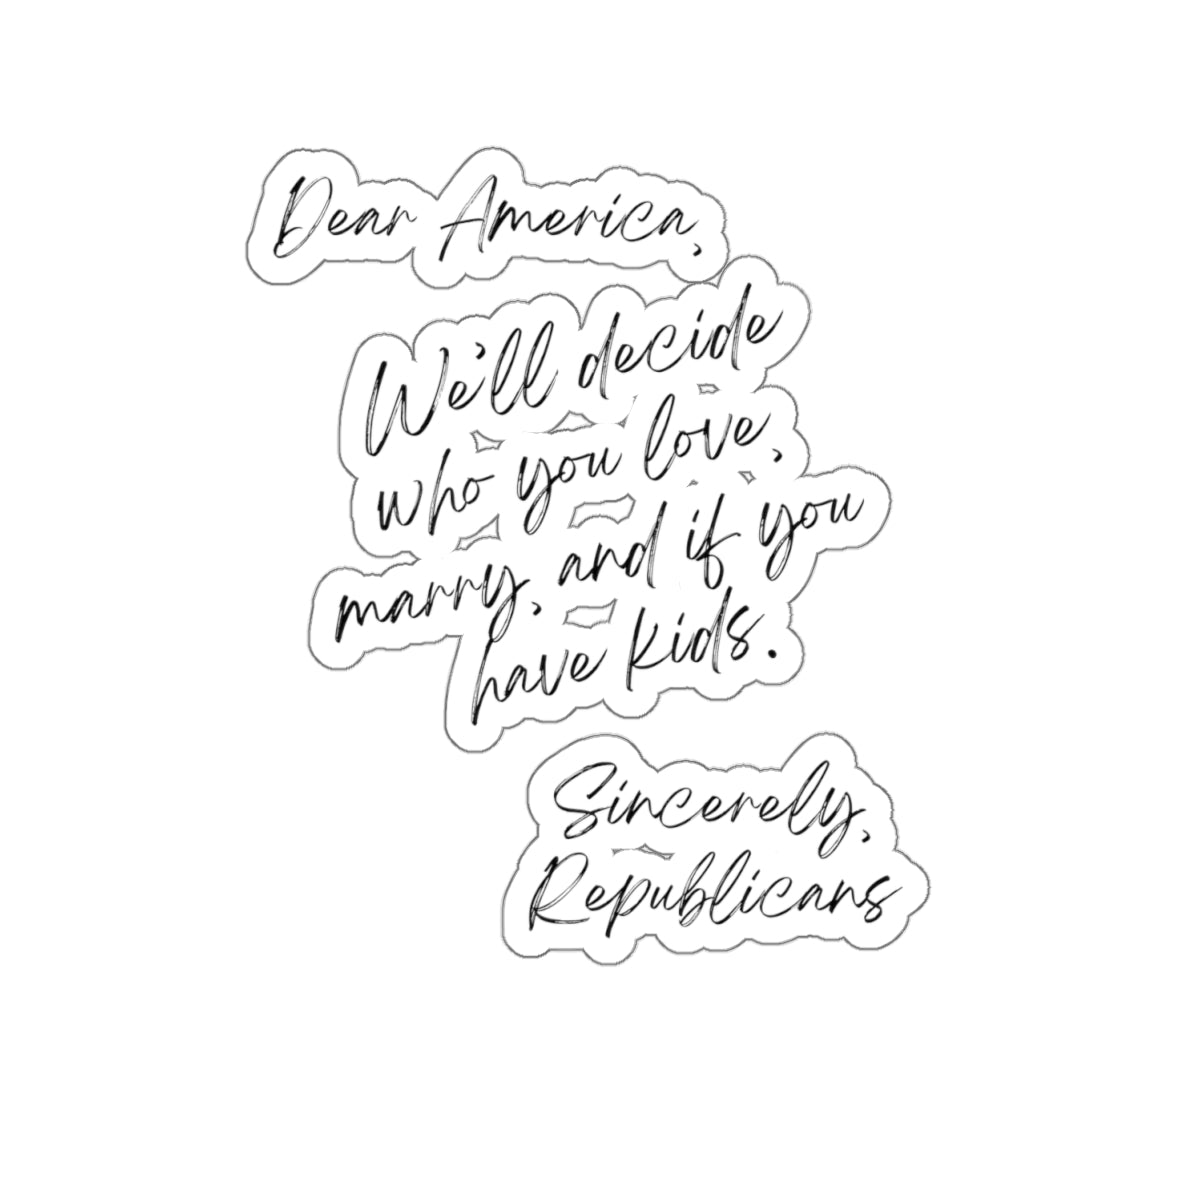 Dear America,
We'll decide
who you love,
marry, and if you
have kids.
Sincerely,
Republicans